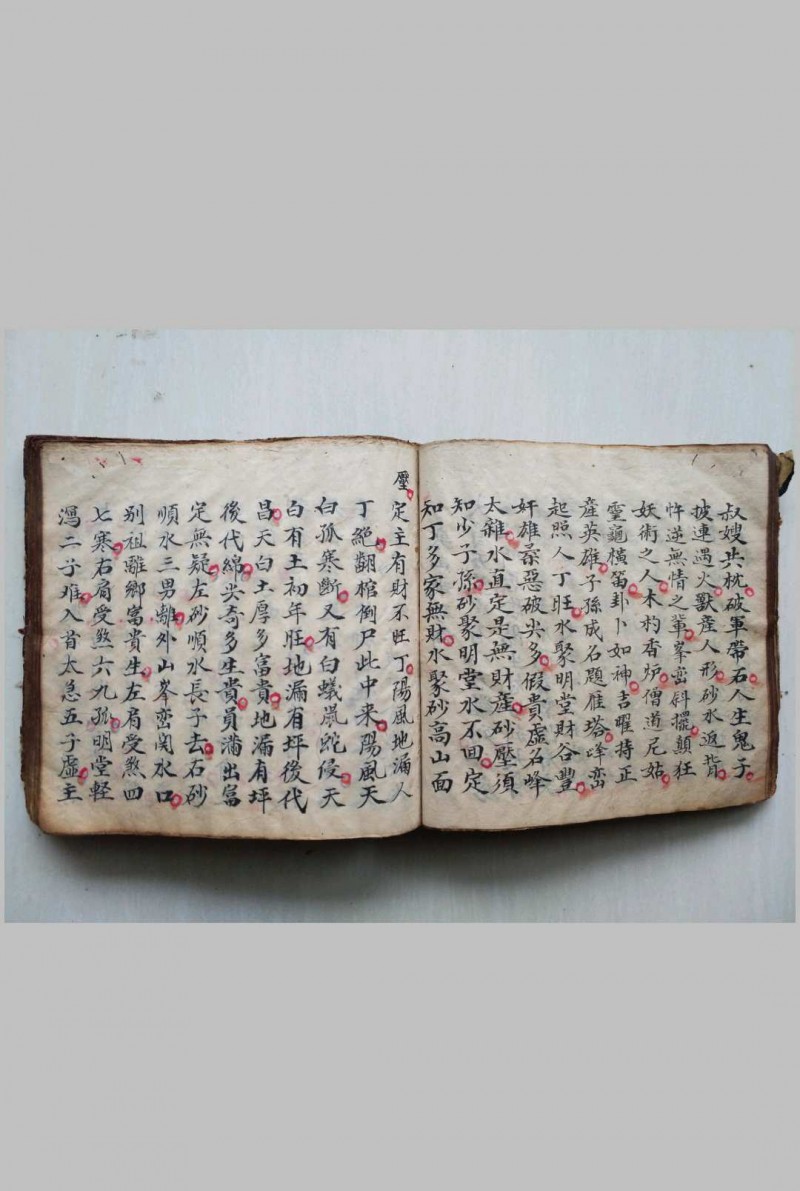 叔嫂共枕破軍帶石人生鬼子
披連遇火獸産人形砂水返背
忤逆無情之輩峯巒斜擺顛狂
妖術之人木杓香炉僧道尼姑
靈龜橫笛卦卜如神吉曜持正
産英雄子孫成名題雁塔峰巒
起照人丁旺水聚明堂財谷豐
奸雄桑惡破尖多假貴虛名峰
太雜水直定是無財産砂壓須
知少子孫砂聚明堂水不回定
知丁多家無財水聚砂高山面
壓定主有財不旺丁陽風地涌人
丁絕翻棺倒尸此中来陽風天
白孤寒斷又有白蟻鼠蛇侵天
白有土初年旺地漏有坪後代
昌天白土厚多富貴地漏有坪
後代綿尖奇多生貴員滿出富
定無疑左砂順水長子去右砂
順水三男離外山峯巒関水口
别祖離鄉富貴生左肩受煞四
七寒右肩受煞六九孤明堂輕
瀉二子难入首太急五子虛主